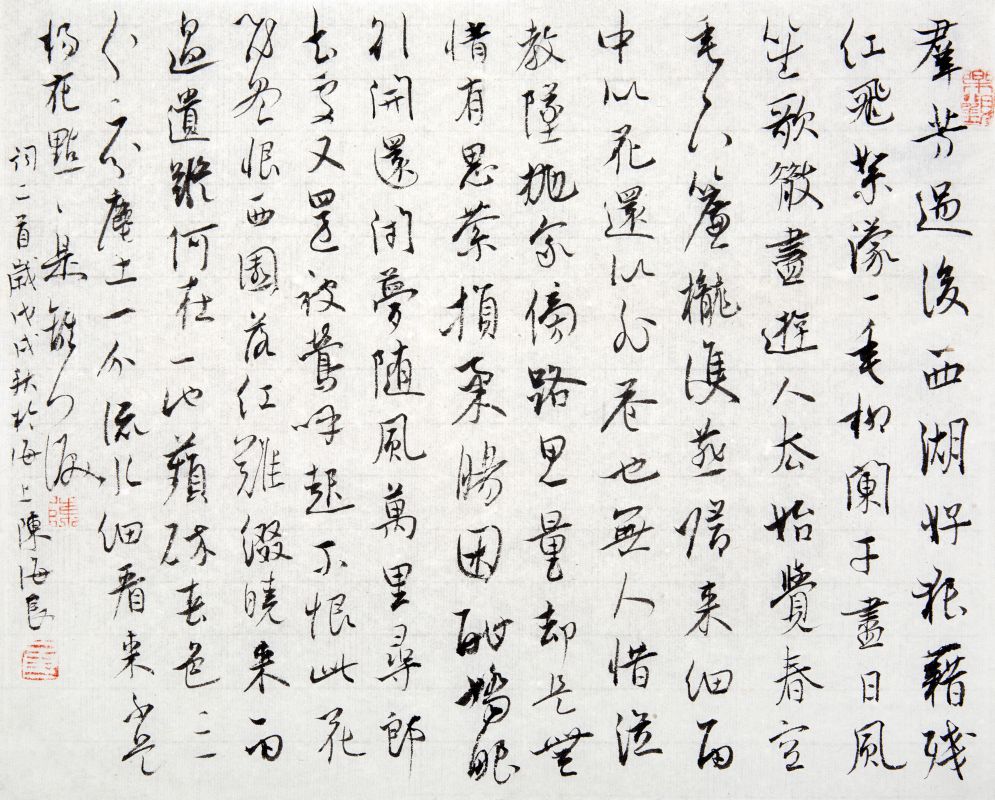 羣芳過後西湖好狼藉残
红飛絮濛〻垂柳闌干盡日風
笙歌散盡遊人去始覺春空
垂下簾櫳雙燕歸来细雨
中似花還似非花也無人惜從
教墜抛家傍路思量却是無
情有思縈損柔腸困酣嬌眼
欲開還閉夢随風萬里尋郎
去處又還被鶯呼起不恨此花
飛盡恨西園落红難缀曉来雨
過遺蹤何在一池蘋碎春色三
分二分塵土一分流水细看来不是
楊花點〻是離人淚
詞二首歲戊戌秋於海上陳海良